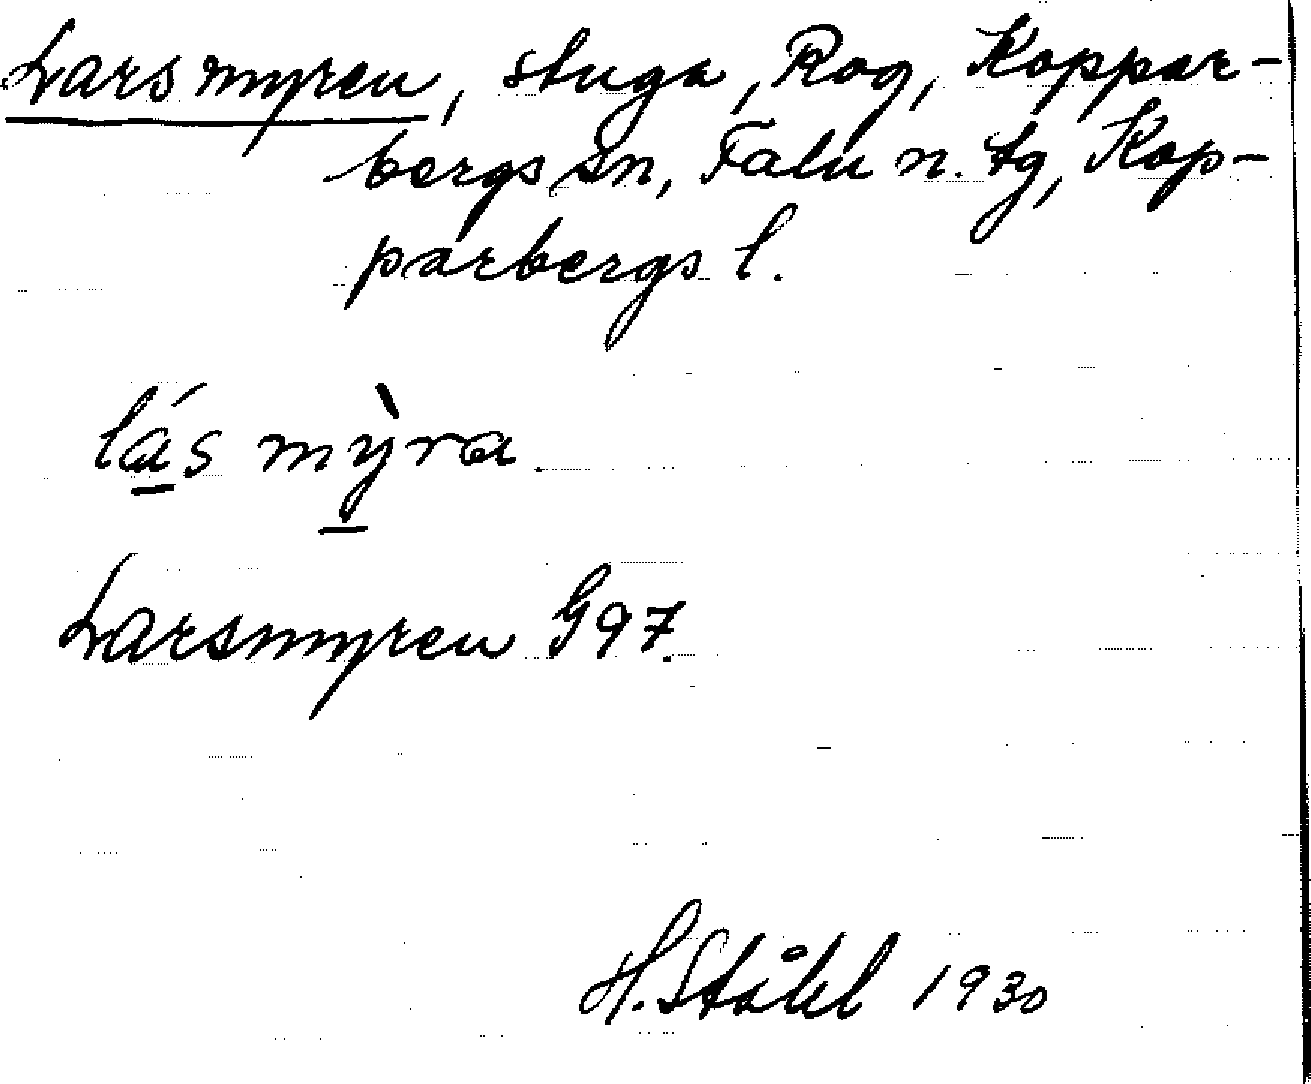 Larsmyren, stuga, Rog, Koppar-
bergs sn, Falu n. tg, Kop-
parbergs l.
lás mỳra
Larsmyren G97.
H. Ståhl 1930